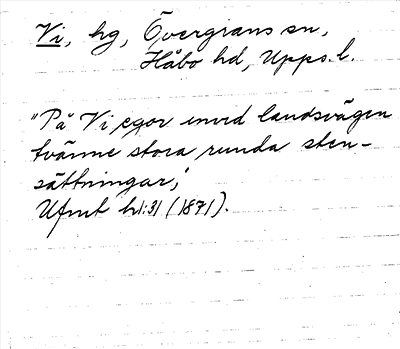 Vi, hg, Övergrans sn,
Håbo hd, Upps. l.
"På Vi egor invid landsvägen
tvänne stora runda sten-
sättningar,"
Ufmt h1:31 (1871).